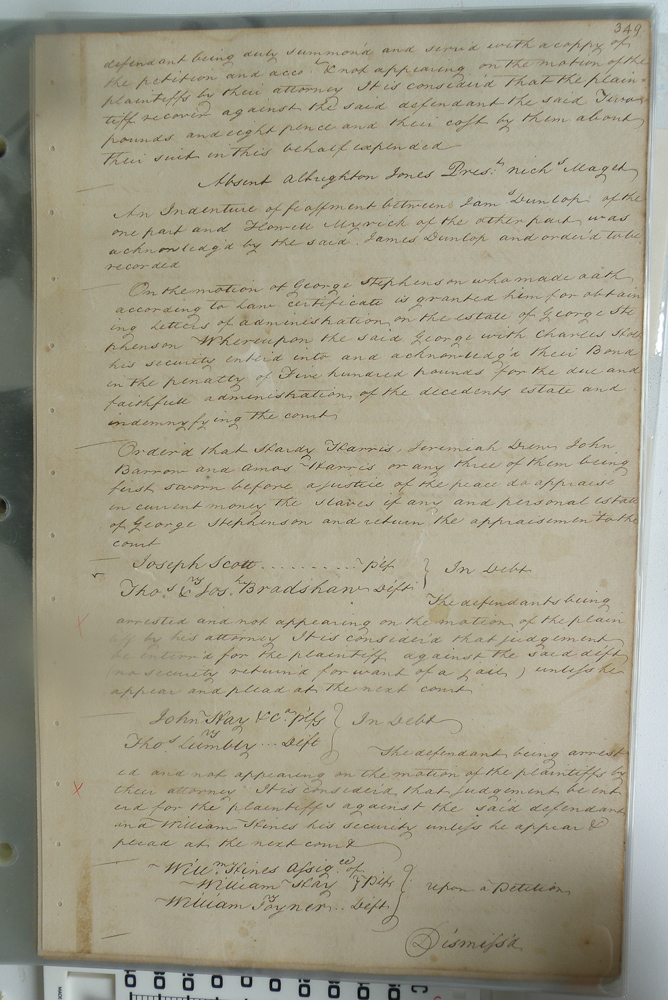 349
defendant being duly summon'd and serv'd with a coppy of
the petition and acco.t & not appearing on the motion of the
plaintiffs by their attorney It is consider'd that the plain-
tiff recover against the said defendant the said Two
pounds and eight pence and their cost by them about
their suit in this behalf expended
Absent Albrighton Jones Pres.t nich.s Maget
An Indenture of feaffment between Jam.s Dunlop of the
one part and Howell Myrick of the other part was
acknowledg'd by the said James Dunlop and order'd to be
recorded
On the motion of George Stephenson who made oath
according to Law certificate is granted him for obtain
ing Letters of administration on the estate of George Ste
phenson Whereupon the said George with Charles
his security enter'd into and acknowledg'd their Bond
in the penalty of Five hundred pounds for the due and
faithfull administration of the decedents estate and
indemnyfying the court
Order'd that Hardy Harris, Jeremiah Drew John
Barrow and Amos Harris or any three of them being
first sworn before a justice of the peace do appraise
in current money the slaves if any and personal estate
of George Stephenson and return the appraisement to the
court
Joseph Scott .......... Plf } In Debt
Tho.s & Jos.h Bradshaw Defts
The defendants being
arrested and not appearing on the motion of the plain
tiff by his attorney It is consider'd that judgement
be enter'd for the plaintiff against the said deft
no security return'd for want of a Jail ) unless he
appear and plead at the next court
John Hay & C.o Plfs } In Debt
Tho.s Lumbly ... Deft
The defendant being arrest
ed and not appearing on the motion of the plaintiffs by
their attorney It is consider'd that judgement be ent
er'd for the plaintiffs against the said defendant
and William Hines his security unless he appear &
plead at the next court
Will.m Hines Assig.ee of
William Hay } Plfs } upon a Petition
William Joyner ... Deft
Dismiss'd